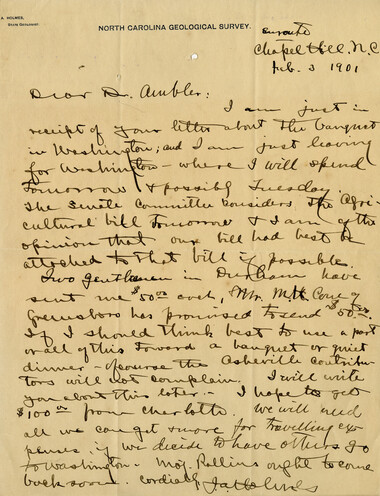 A. HOLMES,
State Geologist.
NORTH CAROLINA GEOLOGICAL SURVEY.
enroute
Chapel Hill, N.C.
Feb. 3 1901
Dear Dr. Ambler:
I am just in
receipt of your letter about the banquet
in Washington; and I am just leaving
for Washington – where I will spend
tomorrow & possibly Tuesday.
The Senate Committee considers the Agri-
cultural bill tomorrow & I am of the
opinion that our bill had best be
attached to that bill if possible.
Two gentlemen in Durham have
sent me $50.00 each, Mr. M.H. Cone of
Greensboro has promised to send $50.00.
If I should think best to use a part
or all of this toward a banquet or quiet
dinner – of course the Asheville contribu-
tors will not complain. I will write
you about this later. – I hope to get
$100.00 from Charlotte. We will need
all we can get & more for travelling ex-
penses, if we decide to have others go
to Washington. – Maj. Rollins ought to come
back soon. Cordially J A Holmes